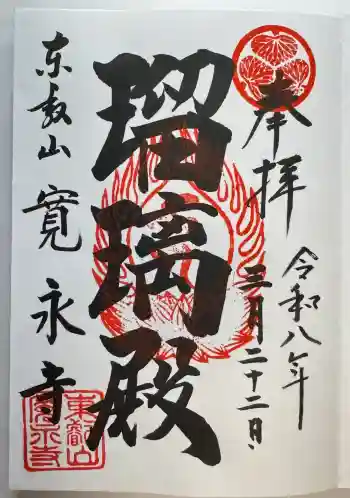 奉拝
令和八年
三月二十二日
瑠璃殿
東叡山 寛永寺
東叡山
寛永寺